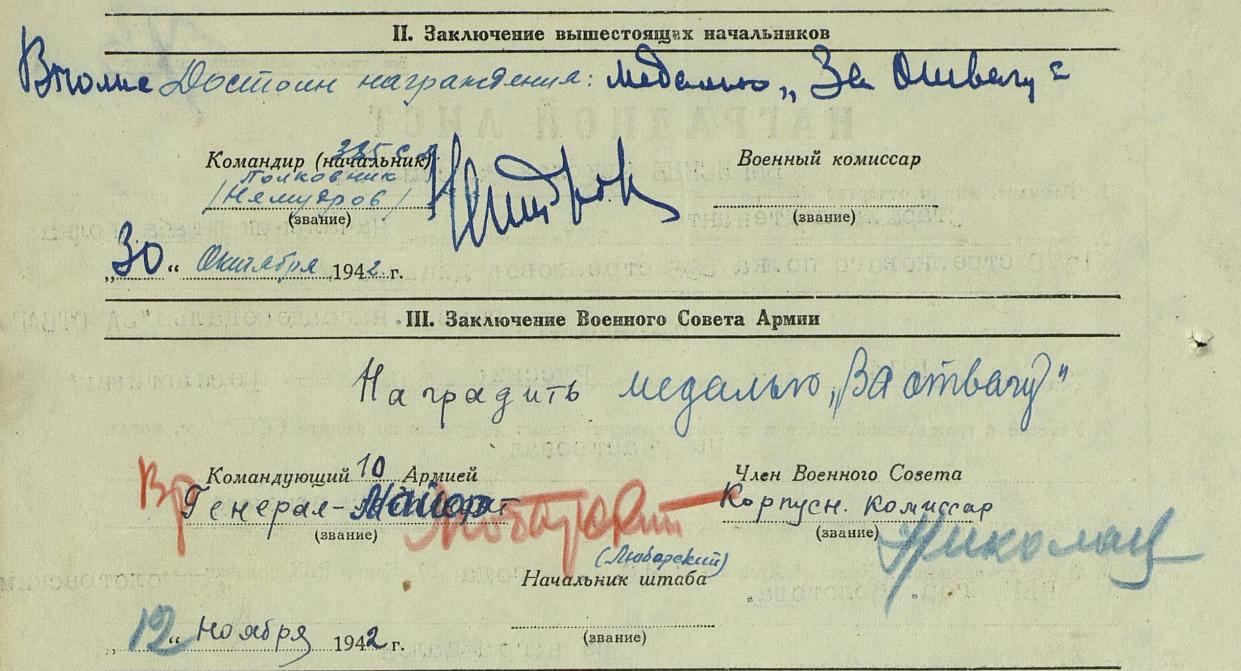 II. Заключение вышестоящих начальников
Вполне Достоин награждения: медалью „За Отвагу"
Командир (начальник)
Военный комиссар
Полковник
/Немудров/
(звание)
(звание)
„30" Октября 1942 г.
III. Заключение Военного Совета Армии
Наградить медалью „За отвагу"
Вр
Командующий 10 Армией
Член Военного Совета
Генерал-Майор
Корпусн. комиссар
(звание)
(звание)
(Любарский)
Николаев
Начальник штаба
(звание)
„12" Ноября 1942 г.